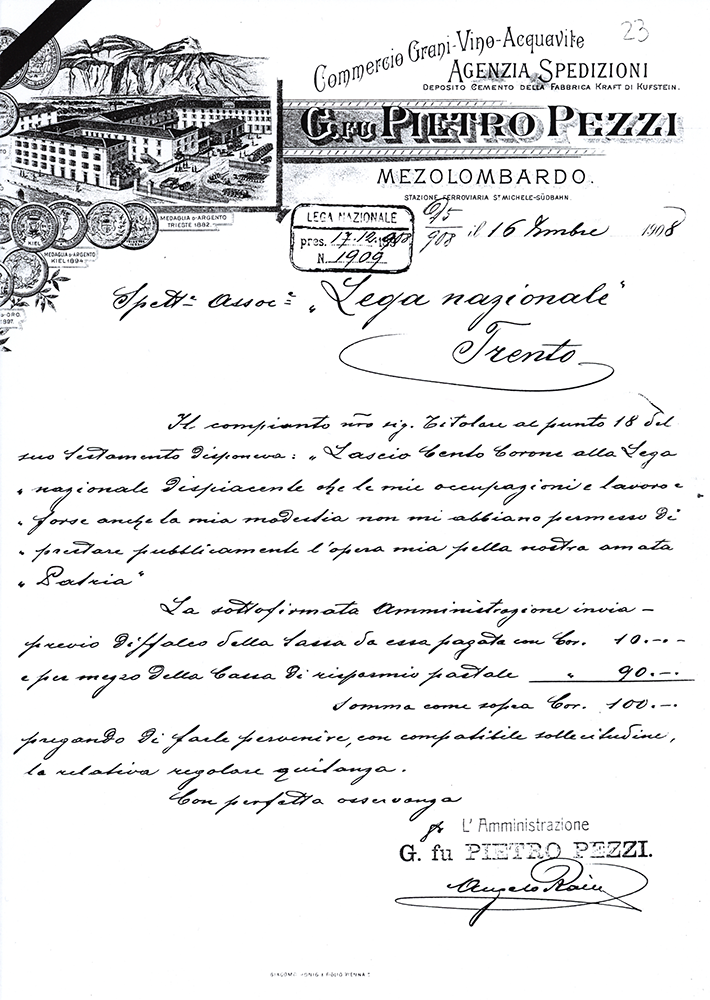 23
Commercio Grani-Vino-Acquavite
AGENZIA SPEDIZIONI
DEPOSITO CEMENTO DELLA FABBRICA KRAFT DI KUFSTEIN.
G. FU PIETRO PEZZI
MEZOLOMBARDO.
STAZIONE FERROVIARIA St MICHELE-SÜDBAHN.
MEDAGLIA D'ARGENTO
TRIESTE 1882.
KIEL
MEDAGLIA D'ARGENTO
KIEL 1894
D'ORO
1897.
LEGA NAZIONALE
pres. 17.12.908
N. 1909
908 il 16 Xmbre 1908
Spett.e Assoc.e "Lega nazionale"
Trento
Il compianto nro sig. Titolare al punto 18 del
suo testamento disponeva: "Lascio Cento Corone alla Lega
" nazionale dispiacente che le mie occupazioni e lavoro e
" forse anche la mia modestia non mi abbiano permesso di
" prestare pubblicamente l'opera mia pella nostra amata
" Patria"
La sottofirmata Amministrazione invia -
previo diffalco della tassa da essa pagata con Cor. 10.-.-
e per mezzo della Cassa di risparmio postale " 90.-.-
Somma come sopra Cor. 100.-.-
pregando di farle pervenire, con compatibile sollecitudine,
la relativa regolare quitanza.
Con perfetta osservanza
L' Amministrazione
G. fu PIETRO PEZZI.
Angelo